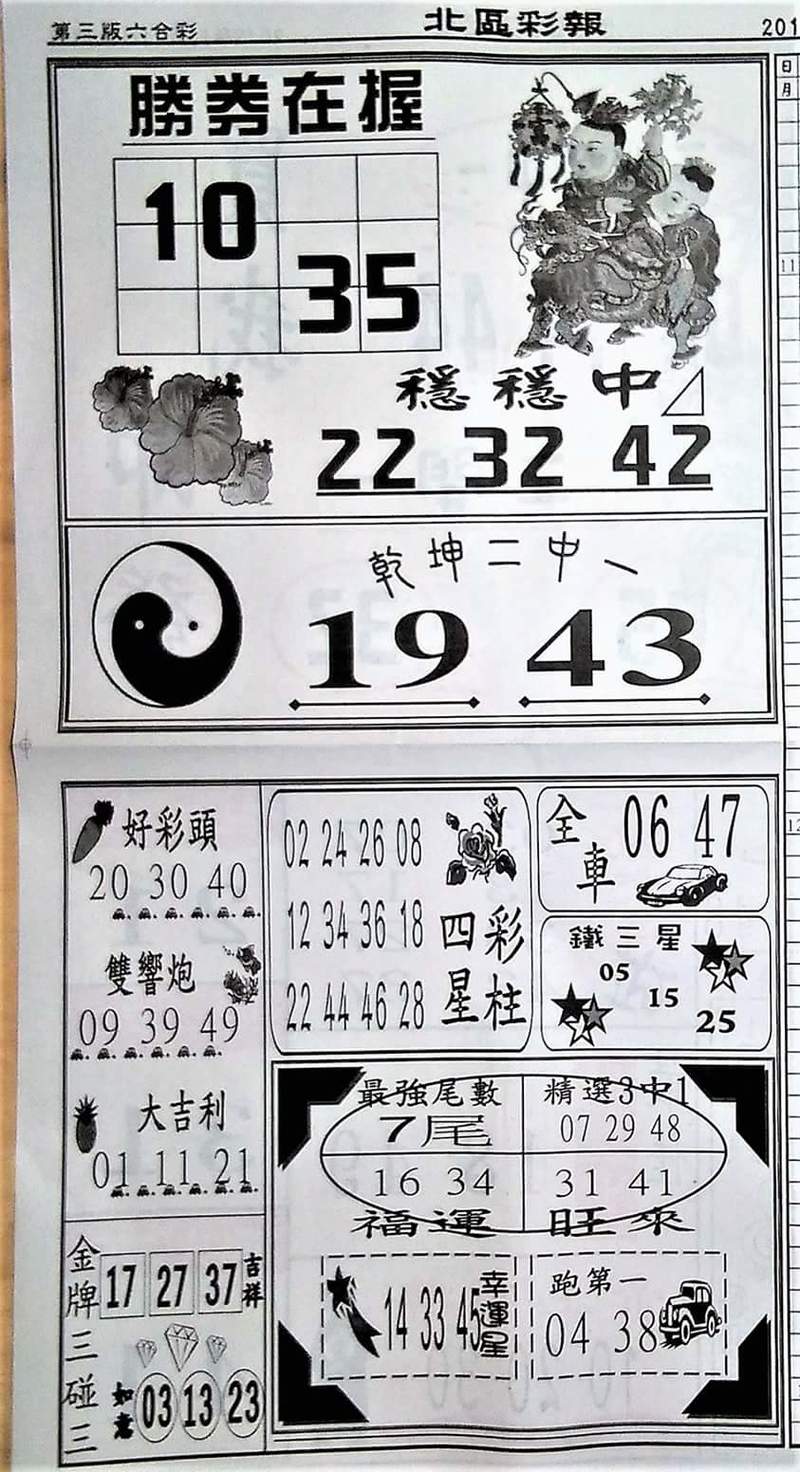 第三版六合彩
北區彩報
201
日
月
11
12
勝券在握
10
35
穩穩中
22 32 42
乾坤二中一
19 43
好彩頭
20 30 40
雙響炮
09 39 49
大吉利
01 11 21
金牌三碰三
17 27 37
吉祥
如意
03 13 23
02 24 26 08
12 34 36 18
22 44 46 28
四星彩柱
全車
06 47
鐵三星
05
15
25
最強尾數
7尾
精選3中1
07 29 48
16 34
31 41
福運
旺來
14 33 45
幸運星
跑第一
04 38